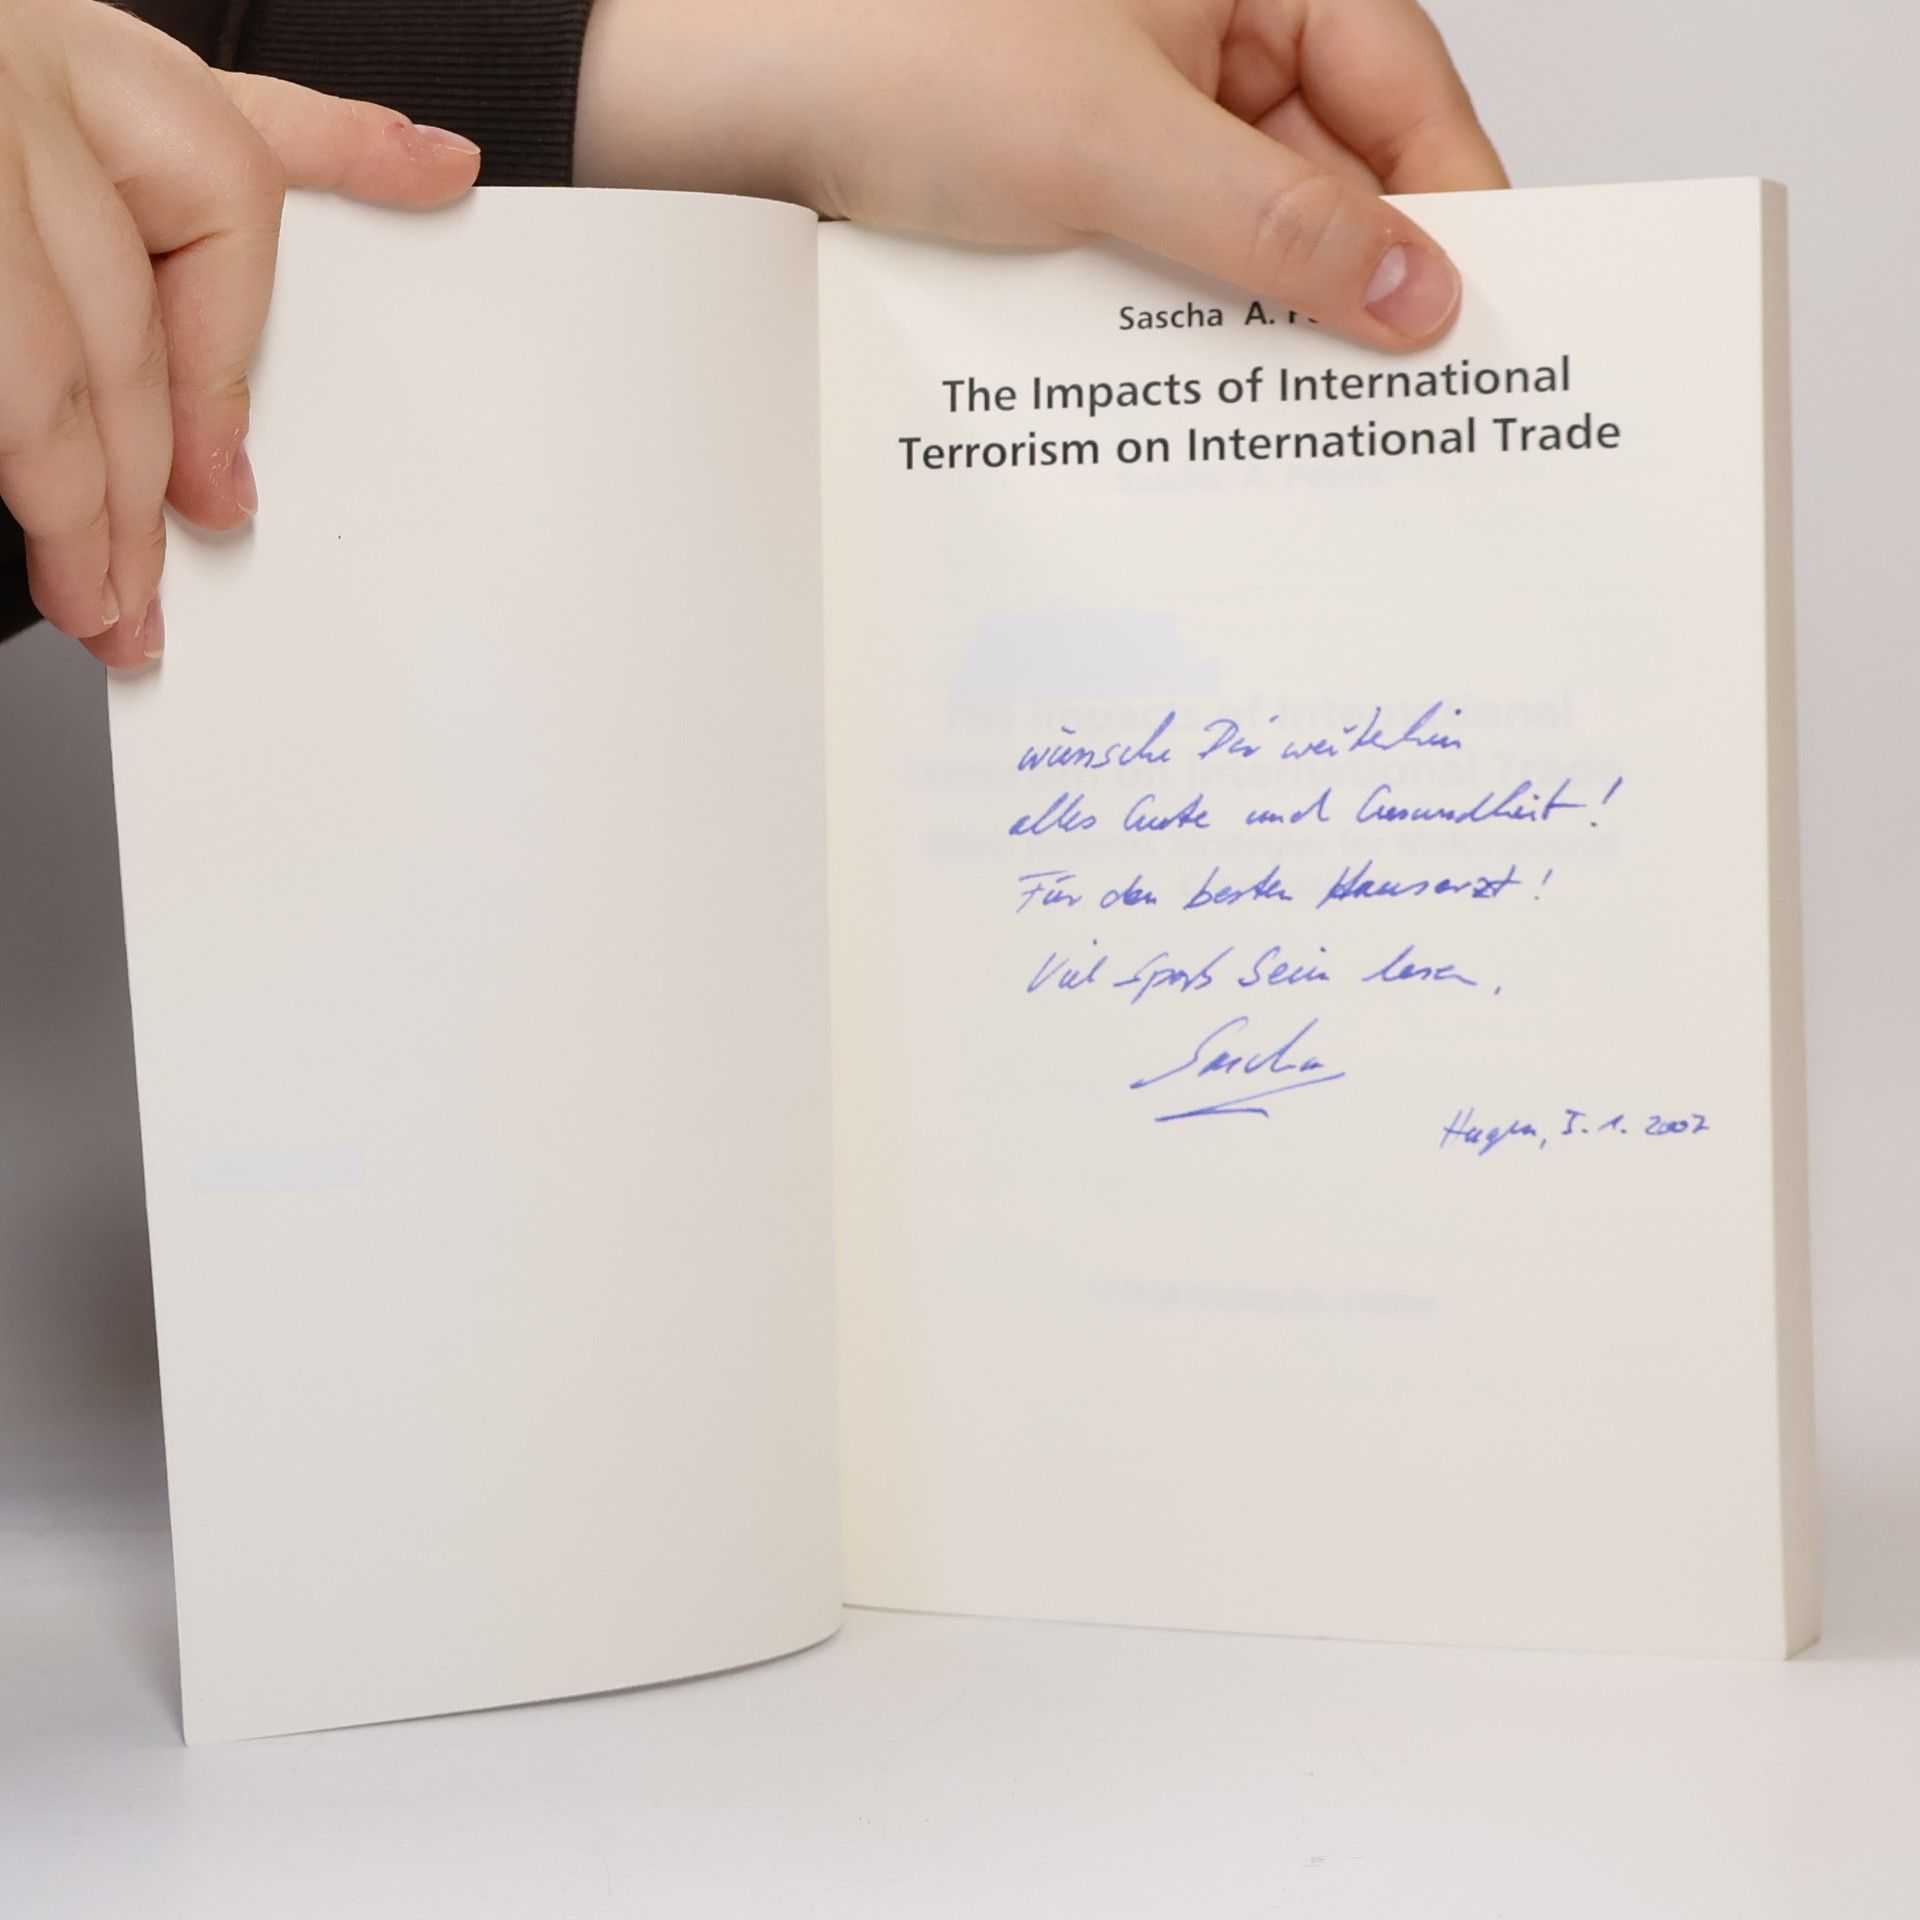 Sascha A.
The Impacts of International
Terrorism on International Trade
wünsche Dir weiterhin
alles Gute und Gesundheit!
Für den besten Hausarzt!
Viel Spaß beim lesen,
Sascha
Hagen, 5.1.2007